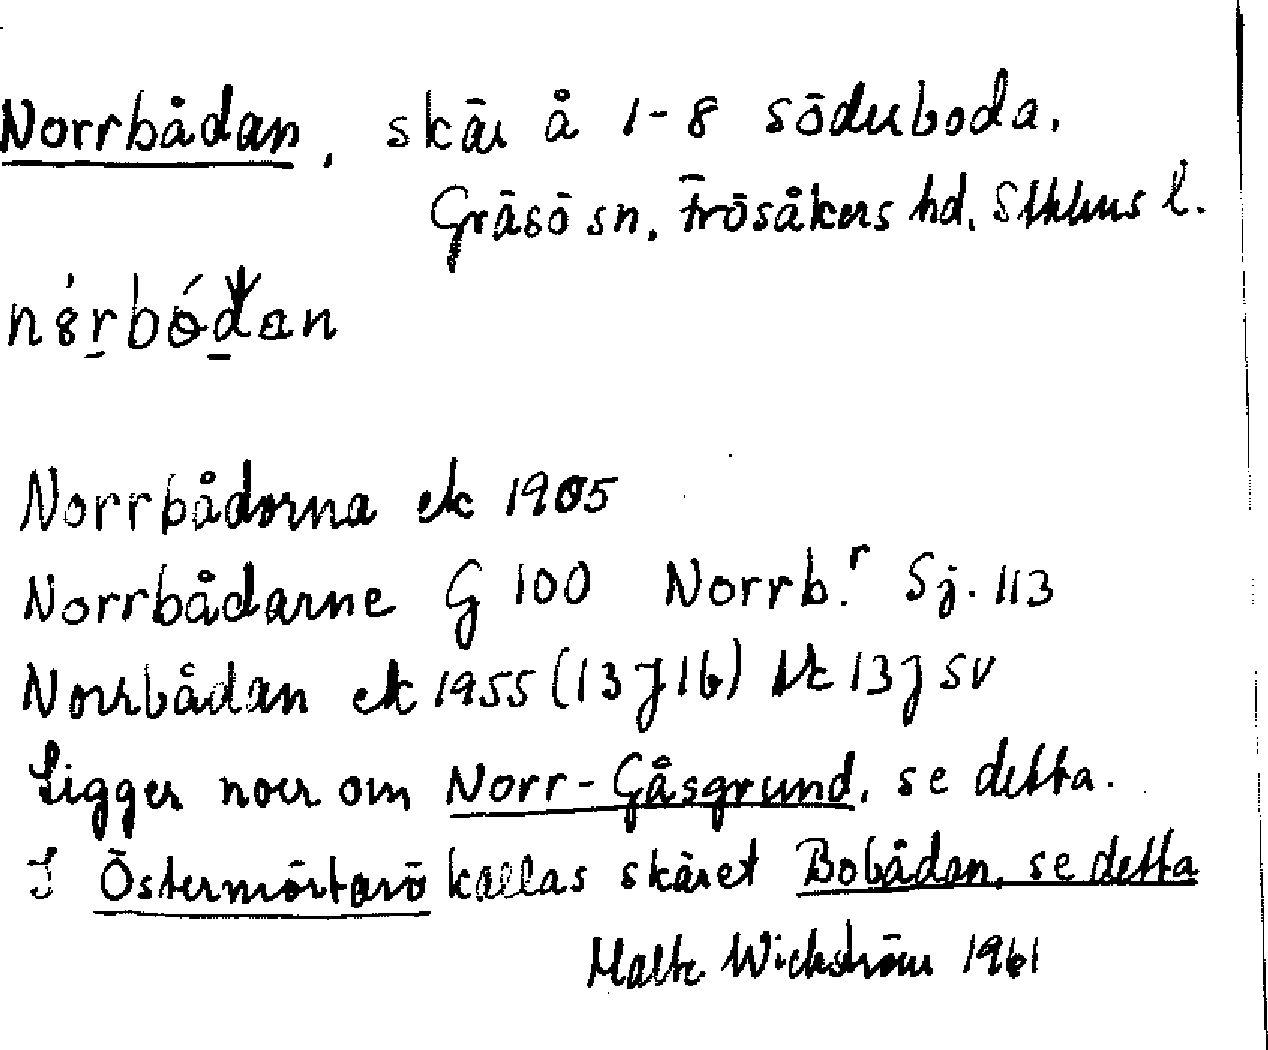 Norrbådan, skär å 1-8 söderboda.
Gräsö sn. Frösåkers hd. Sthlms l.
Norrbådorna ek 1905
Norrbådarne G 100 Norrb.r Sj. 113
Norrbådan ek 1955 (13 J 1b) 13 J SV
Ligger norr om Norr-Gåsgrund, se detta.
I Östermörtarö kallas skäret Bobådan, se detta
Malte Wickström 1961